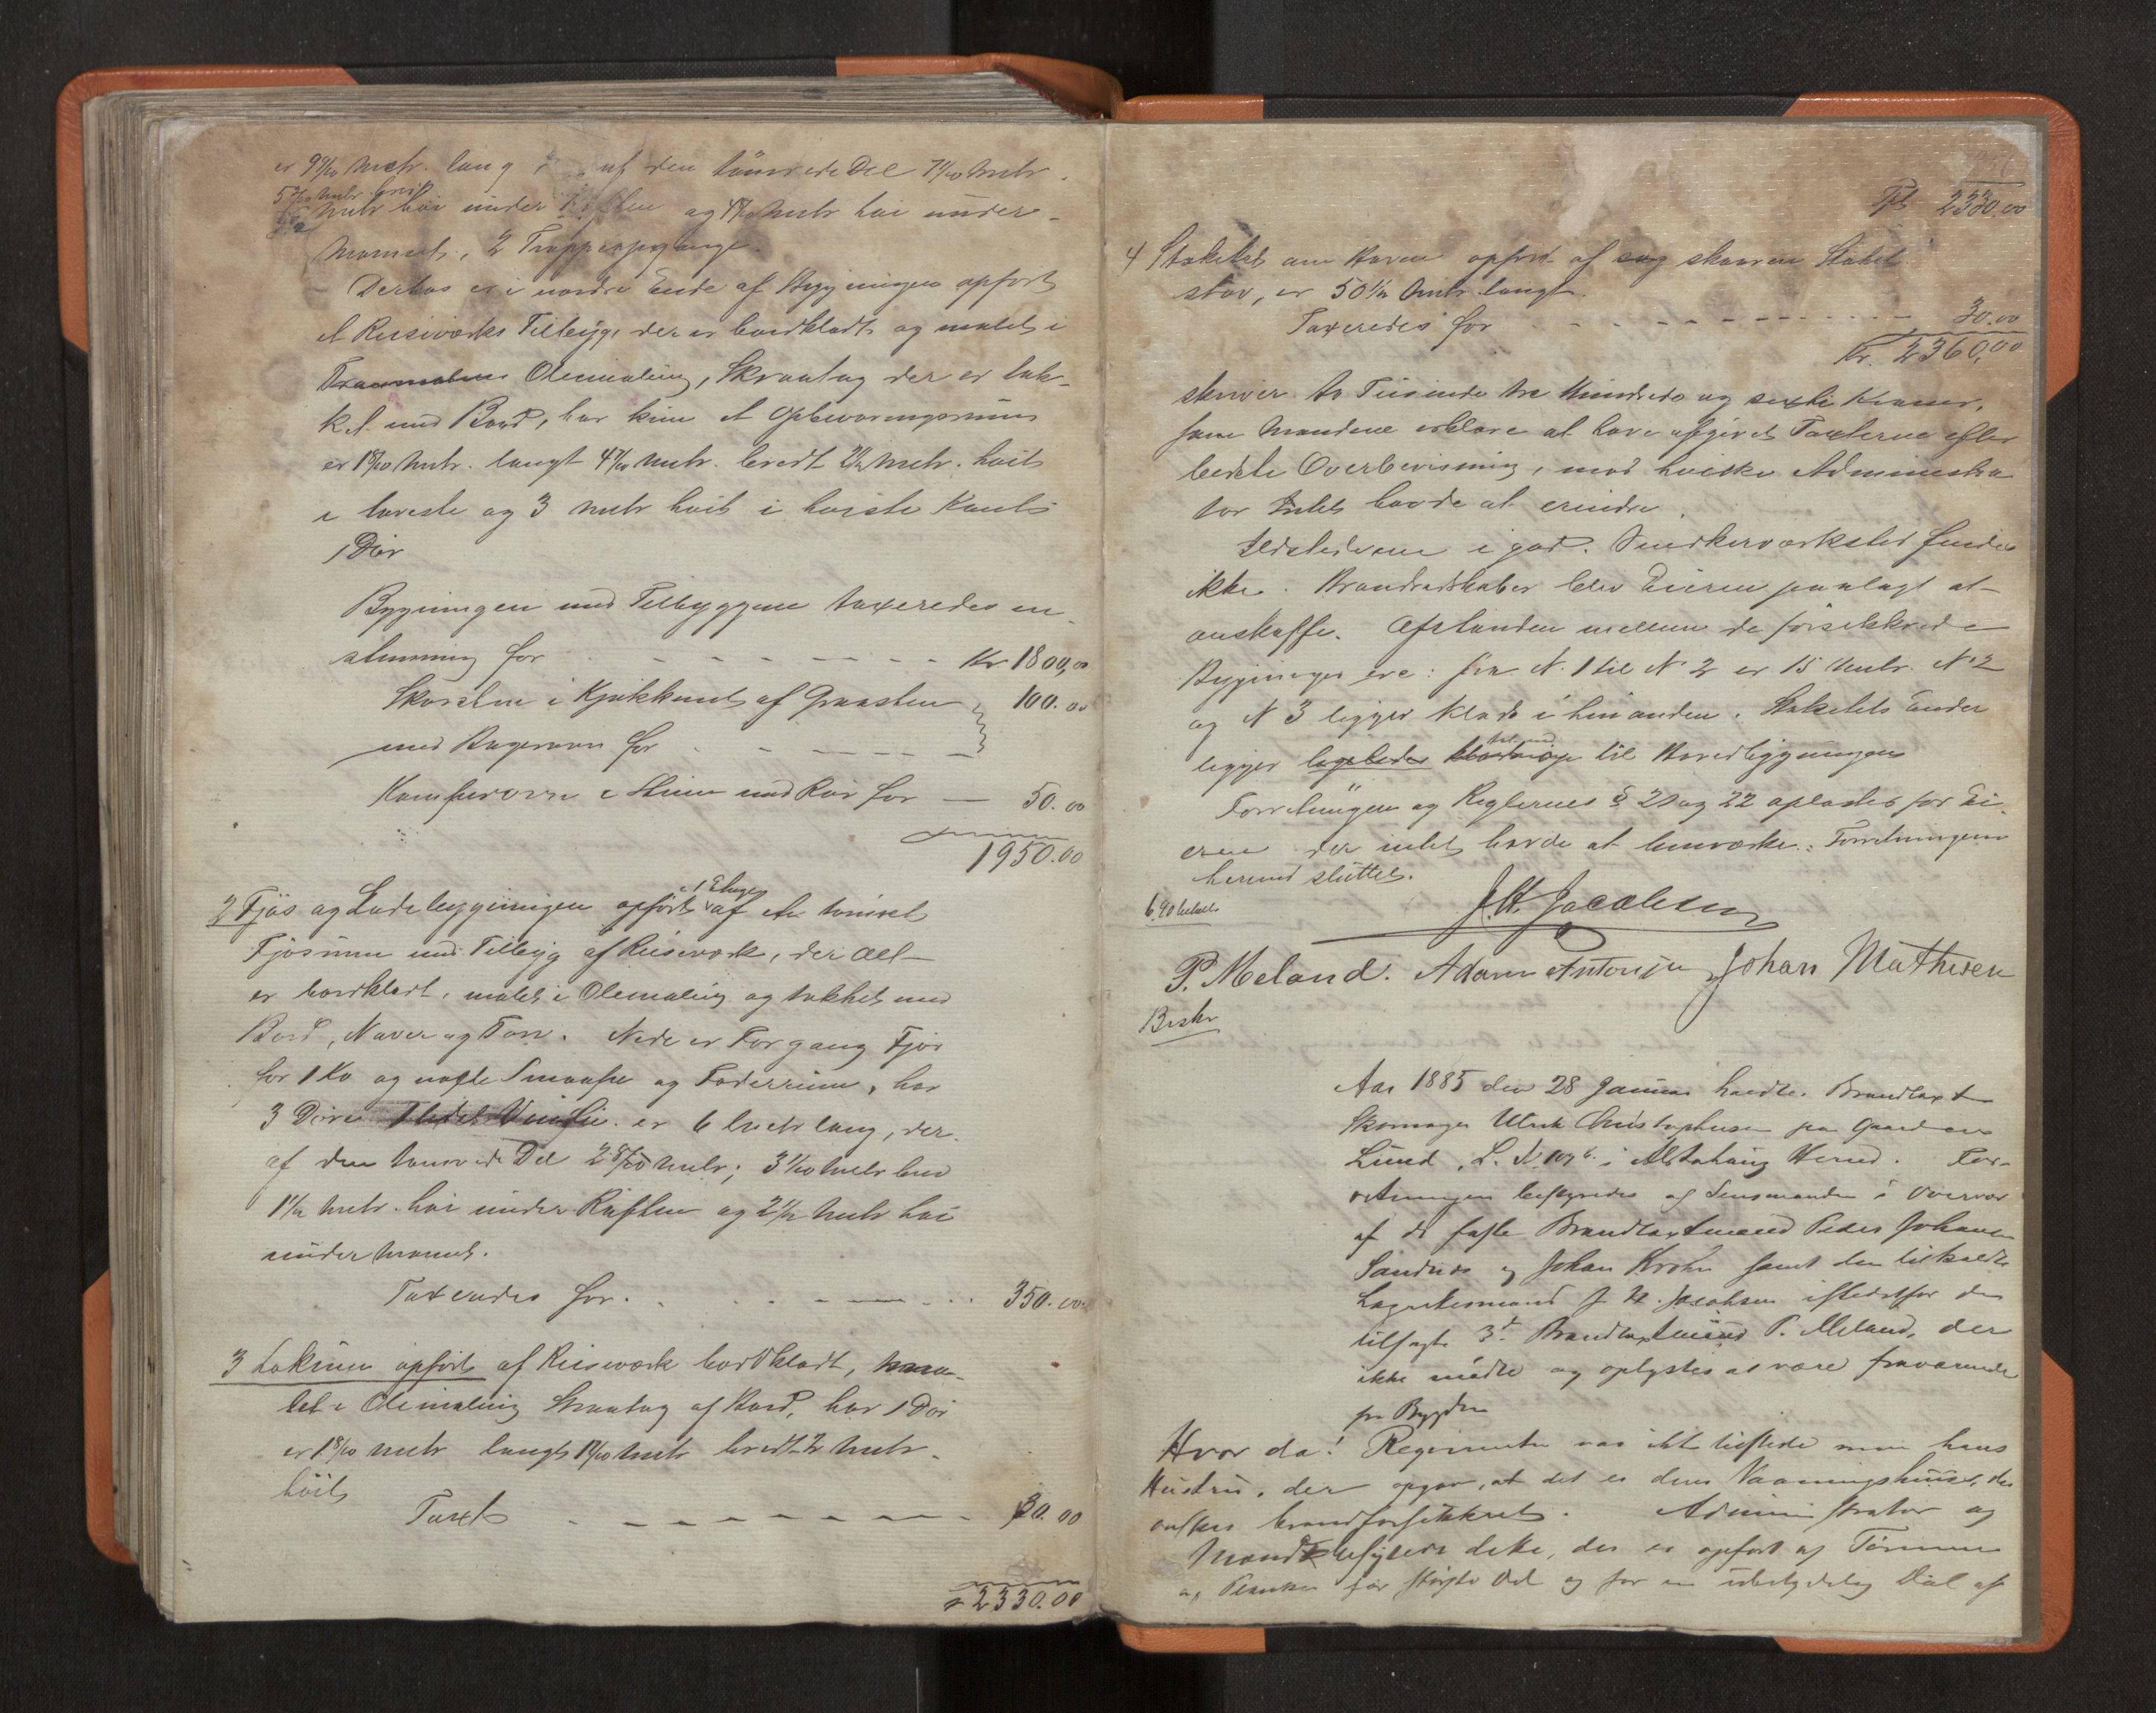 er 9 7/10 Metr. lang af den tömrede Del 7 1/10 Metr.
5 7/10 Metr. breid
Metr høi under Raften og Metr høi under
Mønnet, 2 Trappeopgange.
Desbos er i nordre Ende af Bygningen opført
et Reisværks Tilbyg, der er bordklædt og malet i
Oliemaling, Skraatag der er tæk-
ket med Bord, har kun et Opbevaringsrum
er 1 8/10 Metr. langt 4 7/10 Metr. bredt 2 1/2 Metr. høit
i laveste og 3 Metr høit i høieste Kant
1 Dør
Bygningen med Tilbyggene taxeredes en-
stemmig for - - - - - - - Kr 1800,00
Skorsten i Kjøkkenet af Graasten 100.00
med Bagerovn for - - - -
Komfurovn i Stuen med Rør for — 50.00
1950.00
2 Fjøs og Ladebygningen opført i 1 Etage af et tømret
Fjøsrum med Tilbyg af Reisværk, der alt
er bordklædt, malet i Oliemaling og tækket med
Bord, Næver og Torv. Nede er Forgang Fjøs
for 1 Ko og nogle Smaafæ og Foderrum, har
3 Døre er 6 Metr lang, der-
af den tømrede Del 2 8/10 Metr; 3 1/10 Metr bred
1 1/2 Metr. høi under Raften og 2 1/2 Metr høi
under Mønnet.
Taxeredes for - - - - 350.00
3 Lokum opført af Reisværk bordklædt, ma-
let i Oliemaling Skraatag af Bord, har 1 Dør
er 1 8/10 Metr langt Metr bredt 2 Metr.
høit
Taxt - - - - - - - 30.00
2330.00
Tpt 2330.00
4 Stakitet om Haven opført af skaaren Stakit
stav, er 50 1/2 Metr langt.
Taxeredes for - - - - - - - 30.00
Kr. 2360,00
skriver to Tusinde tre Hundrede og sexti Kroner,
som Mændene erklære at have afgivet Taxterne efter
bedste Overbevisning, mod hvilke Administra
tor Intet havde at erindre.
Ildstederne i god. Snedkerværksted findes
ikke. Brandredskaber blev Eieren paalagt at
anskaffe. Afstanden mellem de forsikkrede
Bygninger ere: fra N. 1 til N 2 er 15 Metr. N 2
og N 3 ligger klods i hinanden. Stakitets Ender
ligger ligeledes til Hovedbygningen
Forretningen og Reglernes § 21 og 22 oplæstes for Ei-
eren der intet havde at bemærke. Forretningen
hermed sluttet.
6,90 betalt J. H. Jacobsen
P. Meland. Adam Antonsen Johan Mathisen
Beskr
Aar 1885 den 28 Januar holdtes Brandtaxt
Skomager Ulrik Christophersen paa Gaarden
Lund, L. N 109 b. i Alstahaug Herred. For-
retningen bestyredes af Lensmanden i Overvær
af de faste Brandtaxtmænd Peder Johansen
Sandnes og Johan Krohn samt den tilkaldte
Lagrettesmand J. H. Jacobsen istedetfor den
tilsagte 3die Brandtaxtmand P. Meland, der
ikke mødte og oplystes at være fraværende
fra Bygden
Hvor da! Requirenten var ikke tilstede men hans
Hustru, der opgav, at det er deres Vaaningshuus, der
ønskes brandforsikkret. Administrator og
Mænd besigtede dette, der er opført af Tømmer
og Planker for største Del og for en ubetydelig Del af